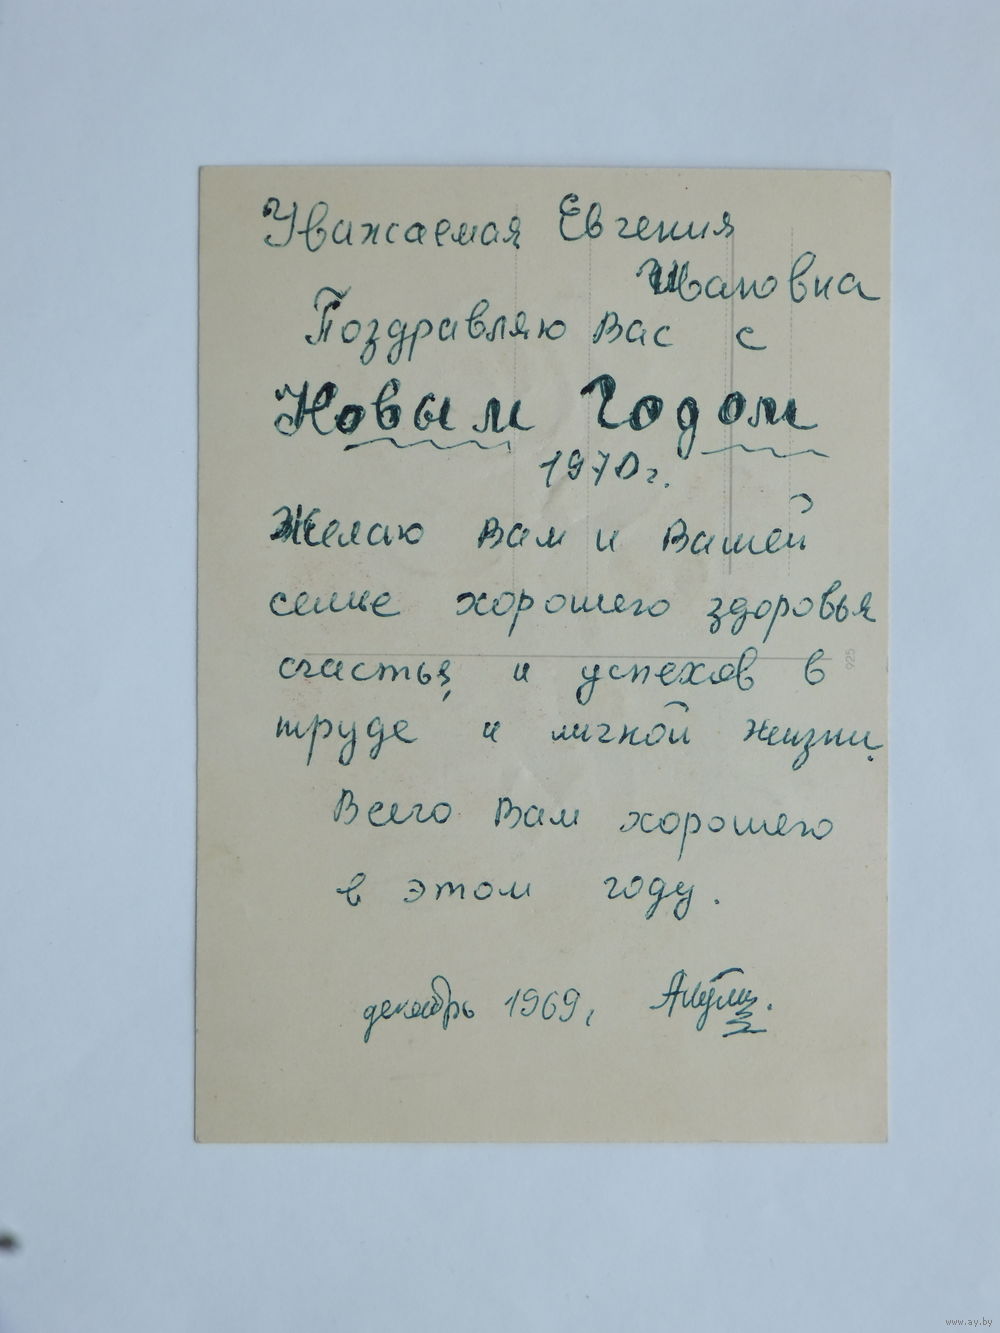 Уважаемая Евгения
Ивановна
Поздравляю Вас с
Новым Годом
1970 г.
Желаю Вам и Вашей
семье хорошего здоровья
счастья, и успехов в
труде и личной жизни.
Всего Вам хорошего
в этом году.
декабрь 1969 г.
925
www.ay.by